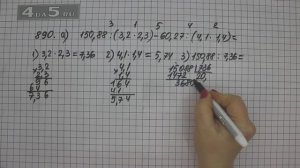 4ДБ.RU
3 1 5 4 2
890. а) 150,88 : (3,2 · 2,3) - 60,27 : (4,1 · 1,4) =
1) 3,2 · 2,3 = 7,36 2) 4,1 · 1,4 = 5,74 3) 150,88 : 7,36 =
3,2 4,1 15088 736
× 2,3 × 1,4 1472 20,
96 164 3680
64 41
7,36 5,74